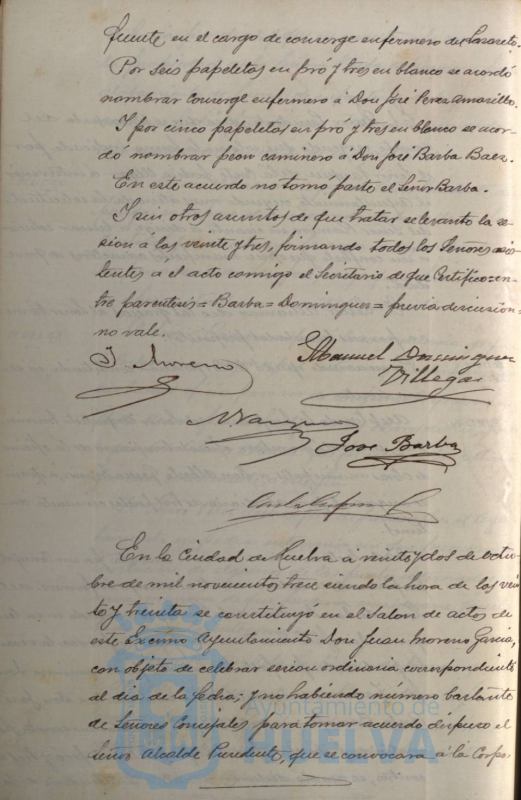 fuente en el cargo de conserge enfermero del Lazareto.
Por seis papeletas en pró y tres en blanco se acordó
nombrar conserge enfermero á Don José Perez Amarillo.
Y por cinco papeletas en pró y tres en blanco se acor-
dó nombrar peon caminero á Don José Barba Baez.
En este acuerdo no tomó parte el Señor Barba.
Y sin otros asuntos de que tratar se levanto la se-
sion á las veinte y tres, firmando todos los Señores asis-
tentes á el acto conmigo el Secretario de que Certifico=en-
tre parentesis= Barba= Dominguez= previa discusion=
no vale.
J. Moreno
Manuel Dominguez
Villegas
Jose Barba
En la Ciudad de Huelva á veinte y dos de Octu-
bre de mil novecientos trece siendo la hora de las vein-
te y treinta se constituyó en el Salon de actos de
este Excmo Ayuntamiento Don Juan Moreno Garcia,
con objeto de celebrar sesion ordinaria correspondiente
al dia de la fecha; y no habiendo número bastante
de Señores Concejales para tomar acuerdo dispuso el
Señor Alcalde Presidente, que se convocara á la Corpo-
Ayuntamiento de
HUELVA